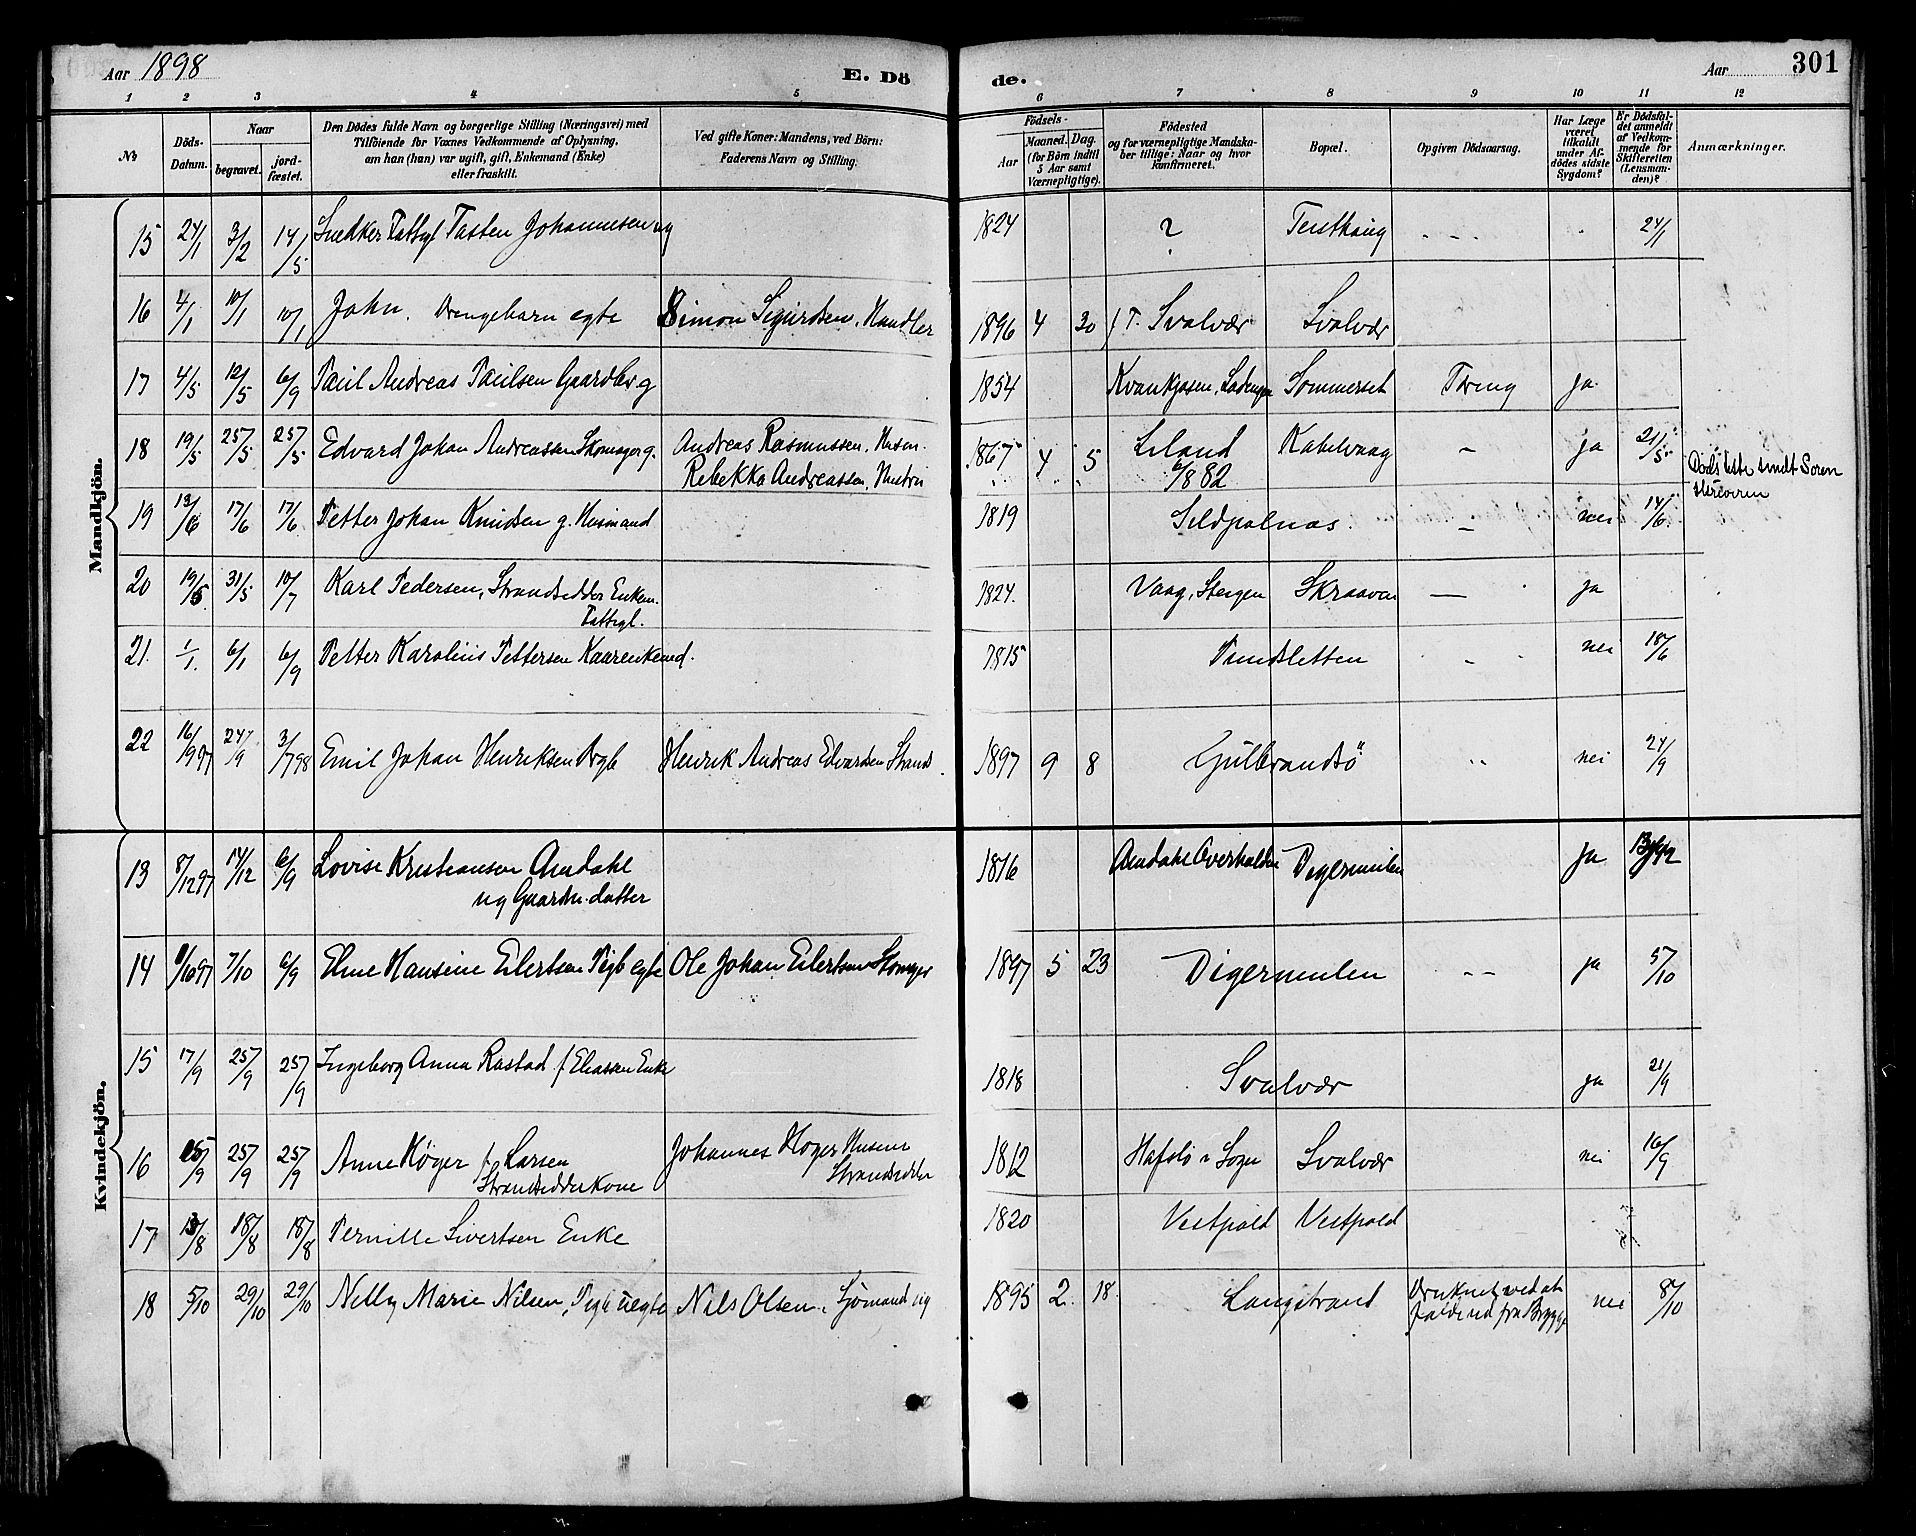 Aar 1898
E. Dö de.
Aar 301
1 2 3 4 5 6 7 8 9 10 11 12
No
Döds-Datum.
Naar
begravet.
jord-fæstet.
Den Dödes fulde Navn og borgerlige Stilling (Næringsvei) med
Tilföiende for Voxnes Vedkommende af Oplysning,
om han (hun) var ugift, gift, Enkemand (Enke)
eller fraskilt.
Ved gifte Koner: Mandens, ved Börn:
Faderens Navn og Stilling.
Födsels-
Aar
Maaned. Dag.
(for Börn indtil
5 Aar samt
Værnepligtige).
Födested
og for værnepligtige Mandska-
ber tillige: Naar og hvor
konfirmeret.
Bopæl.
Opgiven Dödsaarsag.
Har Læge
været
tilkaldt
under Af-
dödes sidste
Sygdom?
Er Dödsfal-
det anmeldt
af Vedkom-
mende for
Skifteretten
(Lensman-
den)?
Anmærkninger.
Mandkjön.
15 24/1 3/2 14/5 Snedker Fattigl Tasten Johannesen ug 1824 ? 24/1
16 4/1 10/1 10/1 John. Drengebarn egte Simon Sigurdsen, Handler 1896 4 30 Svolvær Svolvær
17 4/5 12/5 6/9 Paul Andreas Paulsen Gaardbr g 1854 Sommerset Tæring ja
18 19/5 25/5 25/5 Edvard Johan Andreassen Skomager g. Andreas Rasmussen, Husm. 1867 4 5 Liland Kabelvaag - ja 21/5
Rebekka Andreassen, Hustru 6/8 82 Dødsliste sendt Soren
19 13/6 17/6 17/6 Petter Johan Knudsen g. Husmand 1819 Sildpolnæs. - nei 14/6
20 19/5 31/5 10/7 Karl Pedersen, Strandsidder Enkem. 1824. Vaag, Steigen Skraaven — ja
Fattigl.
21. 1/1. 6/1 6/9 Petter Karolius Pettersen Kaarenkemd. 1815 Pundsletten nei 18/6
22 16/9 97 24/9 3/7 98 Emil Johan Henriksen Drgb Henrik Andreas Edvardsen Strands. 1897 9 8 Gulbrandsö nei 24/9
Kvindekjön.
13 8/12 97 14/12 6/9 Lovise Kristiansen Amdahl 1876 Amdahl Overhalden Digermulen ja
ug Gaardm. datter
14 /10 97 7/10 6/9 Eline Hansine Eilertsen Pigb egte Ole Johan Eilertsen Skomager 1897 5 23 Digermulen -- ja 5/10
15 17/9 25/9 25/9 Ingeborg Anna Rastad f Eliassen Enke 1818 Svolvær ja 21/9
16 15/9 25/9 25/9 Anne Høger f. Larsen Johannes Høger Husm 1812 Hafslo i Sogn Svolvær nei 16/9
Strandsidderkone Strandsidder
17 13/8 18/8 18/8 Pernille Sivertsen Enke 1820 Vestpold Vestpold
18 5/10 29/10 29/10 Nelly Marie Nilsen, Pigb uegte Nils Olsen, Sjømand ug 1895 2. 18. Langstrand Druknet ved at nei 8/10
falde ud fra Brygge